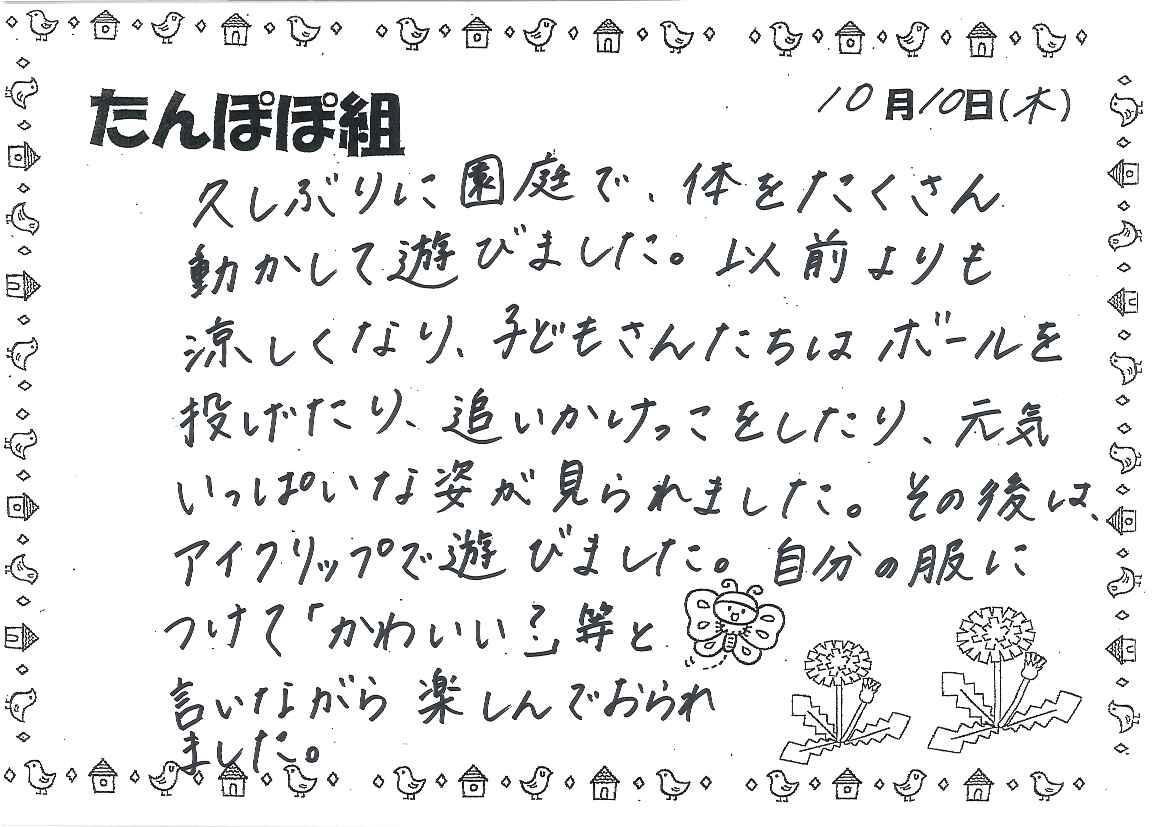 たんぽぽ組
10月10日(木)
久しぶりに園庭で、体をたくさん
動かして遊びました。以前よりも
涼しくなり、子どもさんたちはボールを
投げたり、追いかけっこをしたり、元気
いっぱいな姿が見られました。その後は、
アイクリップで遊びました。自分の服に
つけて「かわいい?」等と
言いながら楽しんでおられ
ました。